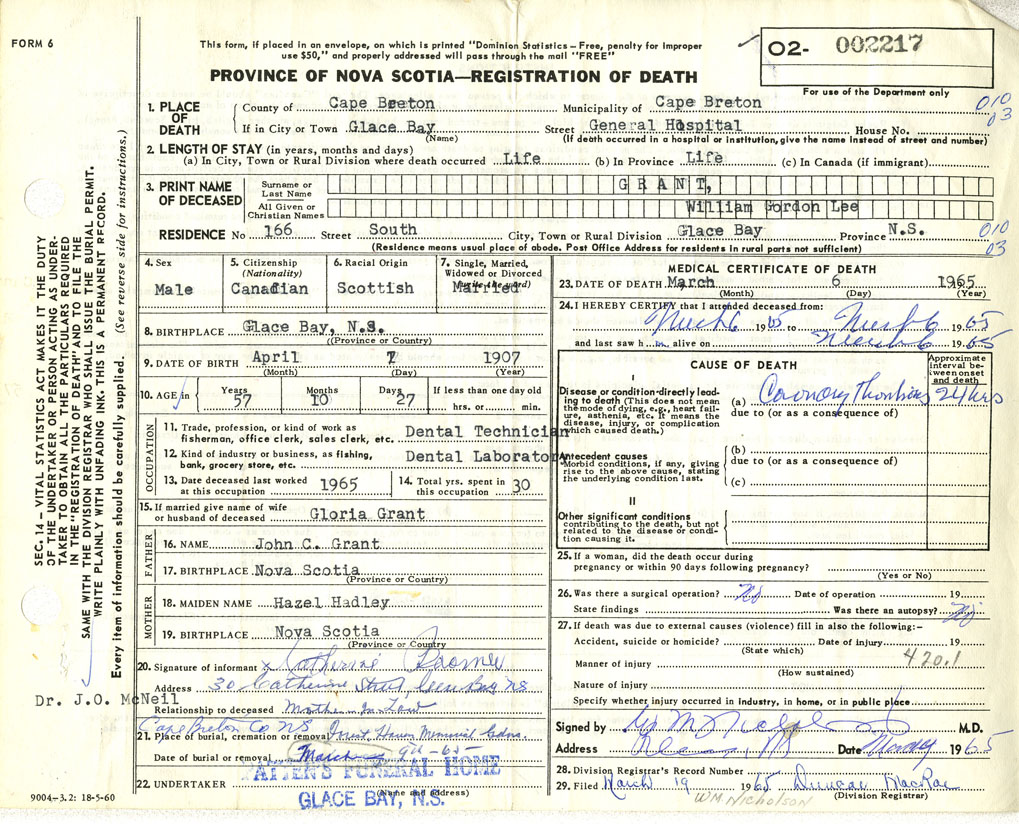 FORM 6
This form, if placed in an envelope, on which is printed "Dominion Statistics – Free, penalty for improper
use $50," and properly addressed will pass through the mail "FREE"
O2- 002217
For use of the Department only
PROVINCE OF NOVA SCOTIA—REGISTRATION OF DEATH
SEC. 14 – VITAL STATISTICS ACT MAKES IT THE DUTY
OF THE UNDERTAKER OR PERSON ACTING AS UNDER-
TAKER TO OBTAIN ALL THE PARTICULARS REQUIRED
IN THE "REGISTRATION OF DEATH" AND TO FILE THE
SAME WITH THE DIVISION REGISTRAR WHO SHALL ISSUE THE BURIAL PERMIT.
WRITE PLAINLY WITH UNFADING INK. THIS IS A PERMANENT RECORD.
Every item of information should be carefully supplied. (See reverse side for instructions.)
1. PLACE OF DEATH
County of Cape Breton Municipality of Cape Breton 010
03
If in City or Town Glace Bay Street General Hospital House No.
(Name) (If death occurred in a hospital or institution, give the name instead of street and number)
2. LENGTH OF STAY (in years, months and days)
(a) In City, Town or Rural Division where death occurred Life (b) In Province Life (c) In Canada (if immigrant)
3. PRINT NAME OF DECEASED
Surname or Last Name GRANT,
All Given or Christian Names William Gordon Lee
RESIDENCE No 166 Street South City, Town or Rural Division Glace Bay Province N.S. 010
03
(Residence means usual place of abode. Post Office Address for residents in rural parts not sufficient)
4. Sex
Male
5. Citizenship (Nationality)
Canadian
6. Racial Origin
Scottish
7. Single, Married, Widowed or Divorced (write the word)
Married
8. BIRTHPLACE Glace Bay, N.S.
(Province or Country)
9. DATE OF BIRTH April 7 1907
(Month) (Day) (Year)
10. AGE in Years 57 Months 10 Days 27 If less than one day old
hrs. or min.
OCCUPATION
11. Trade, profession, or kind of work as
fisherman, office clerk, sales clerk, etc. Dental Technician
12. Kind of industry or business, as fishing,
bank, grocery store, etc. Dental Laborator
13. Date deceased last worked at this occupation 1965
14. Total yrs. spent in this occupation 30
15. If married give name of wife
or husband of deceased Gloria Grant
FATHER
16. NAME John C. Grant
17. BIRTHPLACE Nova Scotia
(Province or Country)
MOTHER
18. MAIDEN NAME Hazel Hadley
19. BIRTHPLACE Nova Scotia
(Province or Country)
20. Signature of informant x Catherine
Address 30 Catherine Street, Glace Bay NS
Dr. J.O. McNeil
Relationship to deceased Mother-In-Law
Cape Breton Co NS
21. Place of burial, cremation or removal Forest Haven Memorial Gdns.
Date of burial or removal March 9th - 65
22. UNDERTAKER PATTEN'S FUNERAL HOME
(Name and address)
GLACE BAY, N.S.
9004–3.2: 18-5-60
MEDICAL CERTIFICATE OF DEATH
23. DATE OF DEATH March 6 1965
(Month) (Day) (Year)
24. I HEREBY CERTIFY that I attended deceased from:
March 6 1965 to March 6 1965
and last saw h im alive on March 6 1965
CAUSE OF DEATH
Approximate interval between onset and death
I
Disease or condition directly lead-
ing to death (This does not mean
the mode of dying, e.g., heart fail-
ure, asthenia, etc. It means the
disease, injury, or complication
which caused death.)
(a) Coronary Thrombosis 24 hrs
due to (or as a consequence of)
Antecedent causes
Morbid conditions, if any, giving
rise to the above cause, stating
the underlying condition last.
(b)
due to (or as a consequence of)
(c)
II
Other significant conditions
contributing to the death, but not
related to the disease or condi-
tion causing it.
25. If a woman, did the death occur during
pregnancy or within 90 days following pregnancy?
(Yes or No)
26. Was there a surgical operation? No Date of operation 19
State findings Was there an autopsy? No
27. If death was due to external causes (violence) fill in also the following:-
Accident, suicide or homicide? Date of injury 19
(State which)
420.1
Manner of injury
(How sustained)
Nature of injury
Specify whether injury occurred in industry, in home, or in public place
Signed by M.D.
Address Date 1965
28. Division Registrar's Record Number
29. Filed March 19 1965 Duncan MacRae
(Division Registrar)
WM Nicholson